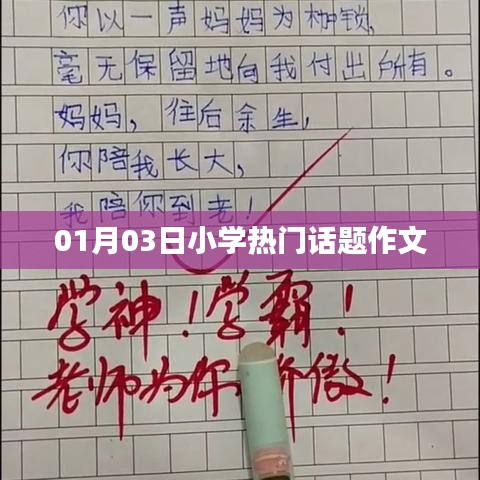 你以一声妈妈为枷锁,
毫无保留地向我付出所有。
妈妈，往后余生，
你陪我长大，
我陪你到老！
01月03日小学热门话题作文
学神！学霸！
老师为你骄傲！